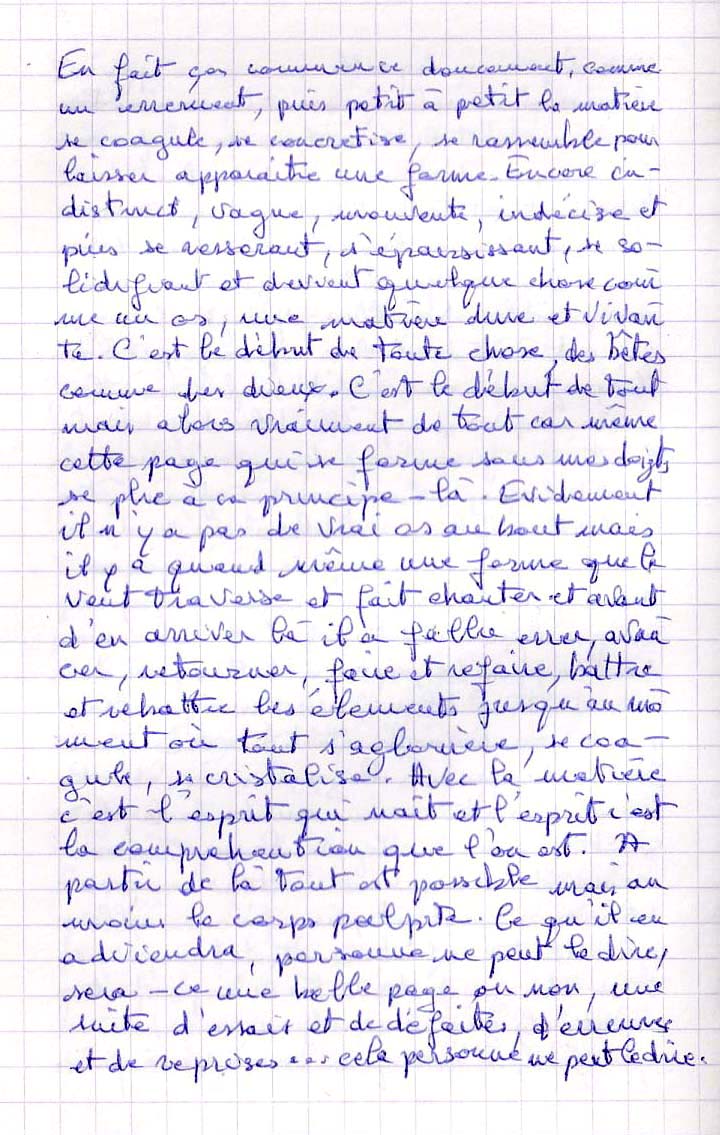 En fait ça commence doucement, comme
un errement, puis petit à petit la matière
se coagule, se concrétise, se rassemble pour
laisser apparaître une forme. Encore in-
distinct, vague, mouvente, indécise et
puis se resserant, s'épaississant, se so-
lidifiant et devient quelque chose com
me un os, une matière dure et vivan
te. C'est le début de toute chose, des bêtes
comme des dieux. C'est le début de tout
mais alors vraiment de tout car même
cette page qui se forme sous mes doigts
se plie à ce principe-là. Evidement
il n'y a pas de vrai os au bout mais
il y a quand même une forme que le
vent traverse et fait chanter et avant
d'en arriver là il a fallu errer, avan
cer, retourner, faire et refaire, battre
et rebattre les éléments jusqu'au mo
ment où tout s'aglomère, se coa-
gule, se cristalise. Avec la matière
c'est l'esprit qui nait et l'esprit c'est
la compréhention que l'on est. A
partir de là tout est possible mais au
moins le corps palpite. Ce qu'il en
adviendra, personne ne peut le dire,
sera-ce une belle page ou non, une
suite d'essais et de défaites, d'erreurs
et de reprises... cela personne ne peut le dire.